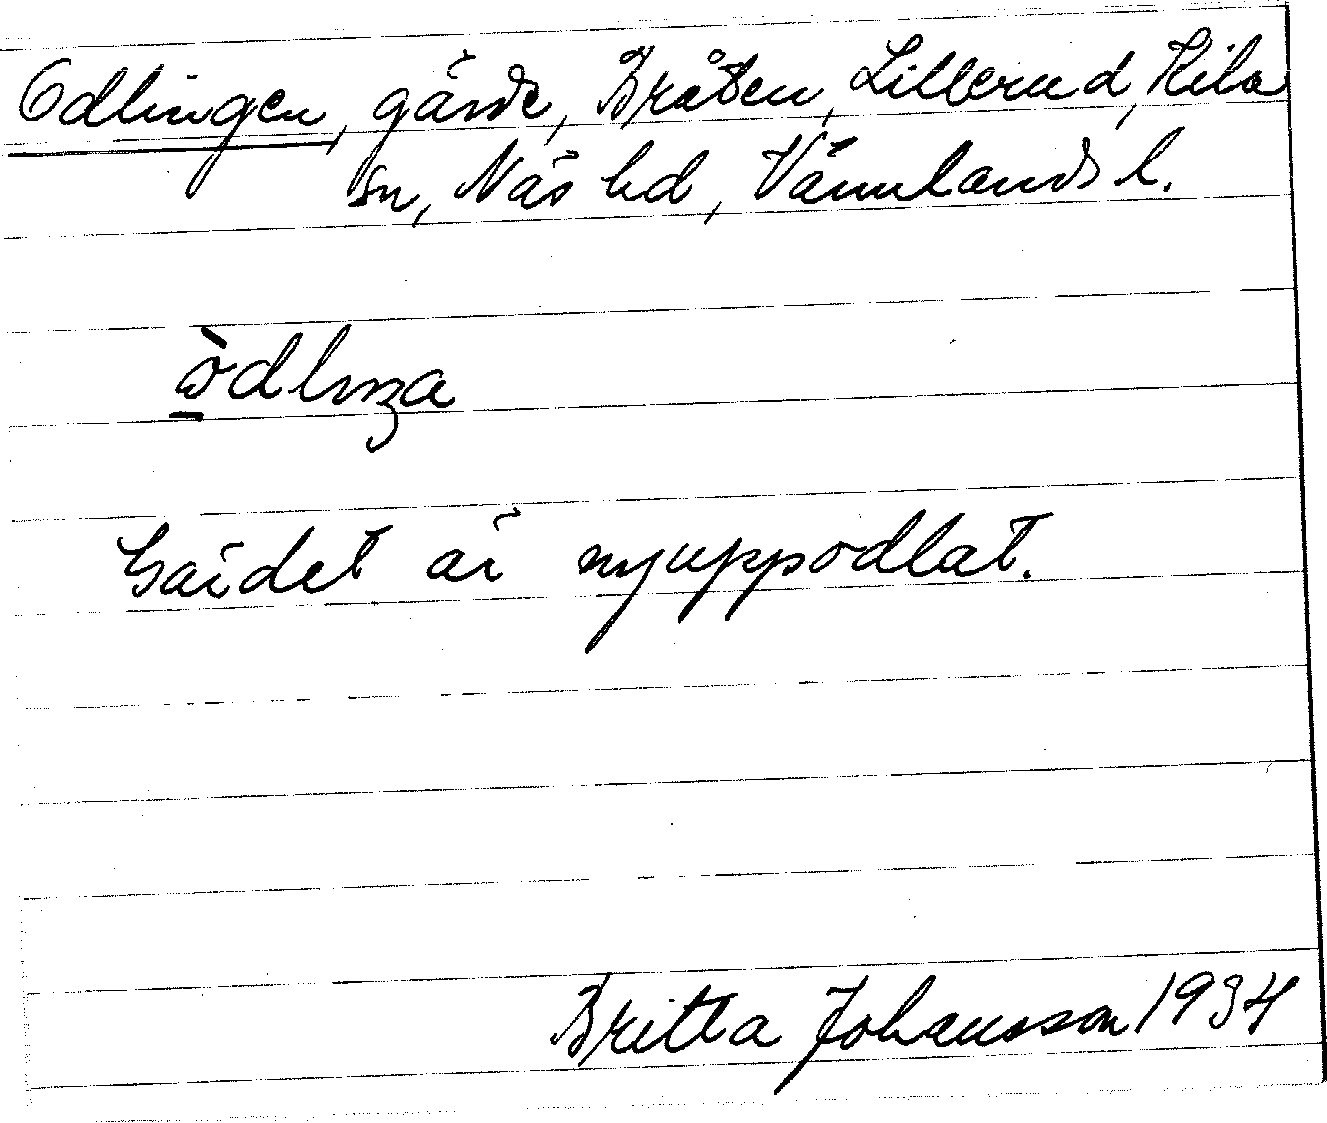 Odlingen, gärde, Bråten, Lillerud, Kila
sn, Näs hd, Värmlands l.
òdlıŋa
Gärdet är nyuppodlat.
Britta Johansson 1934